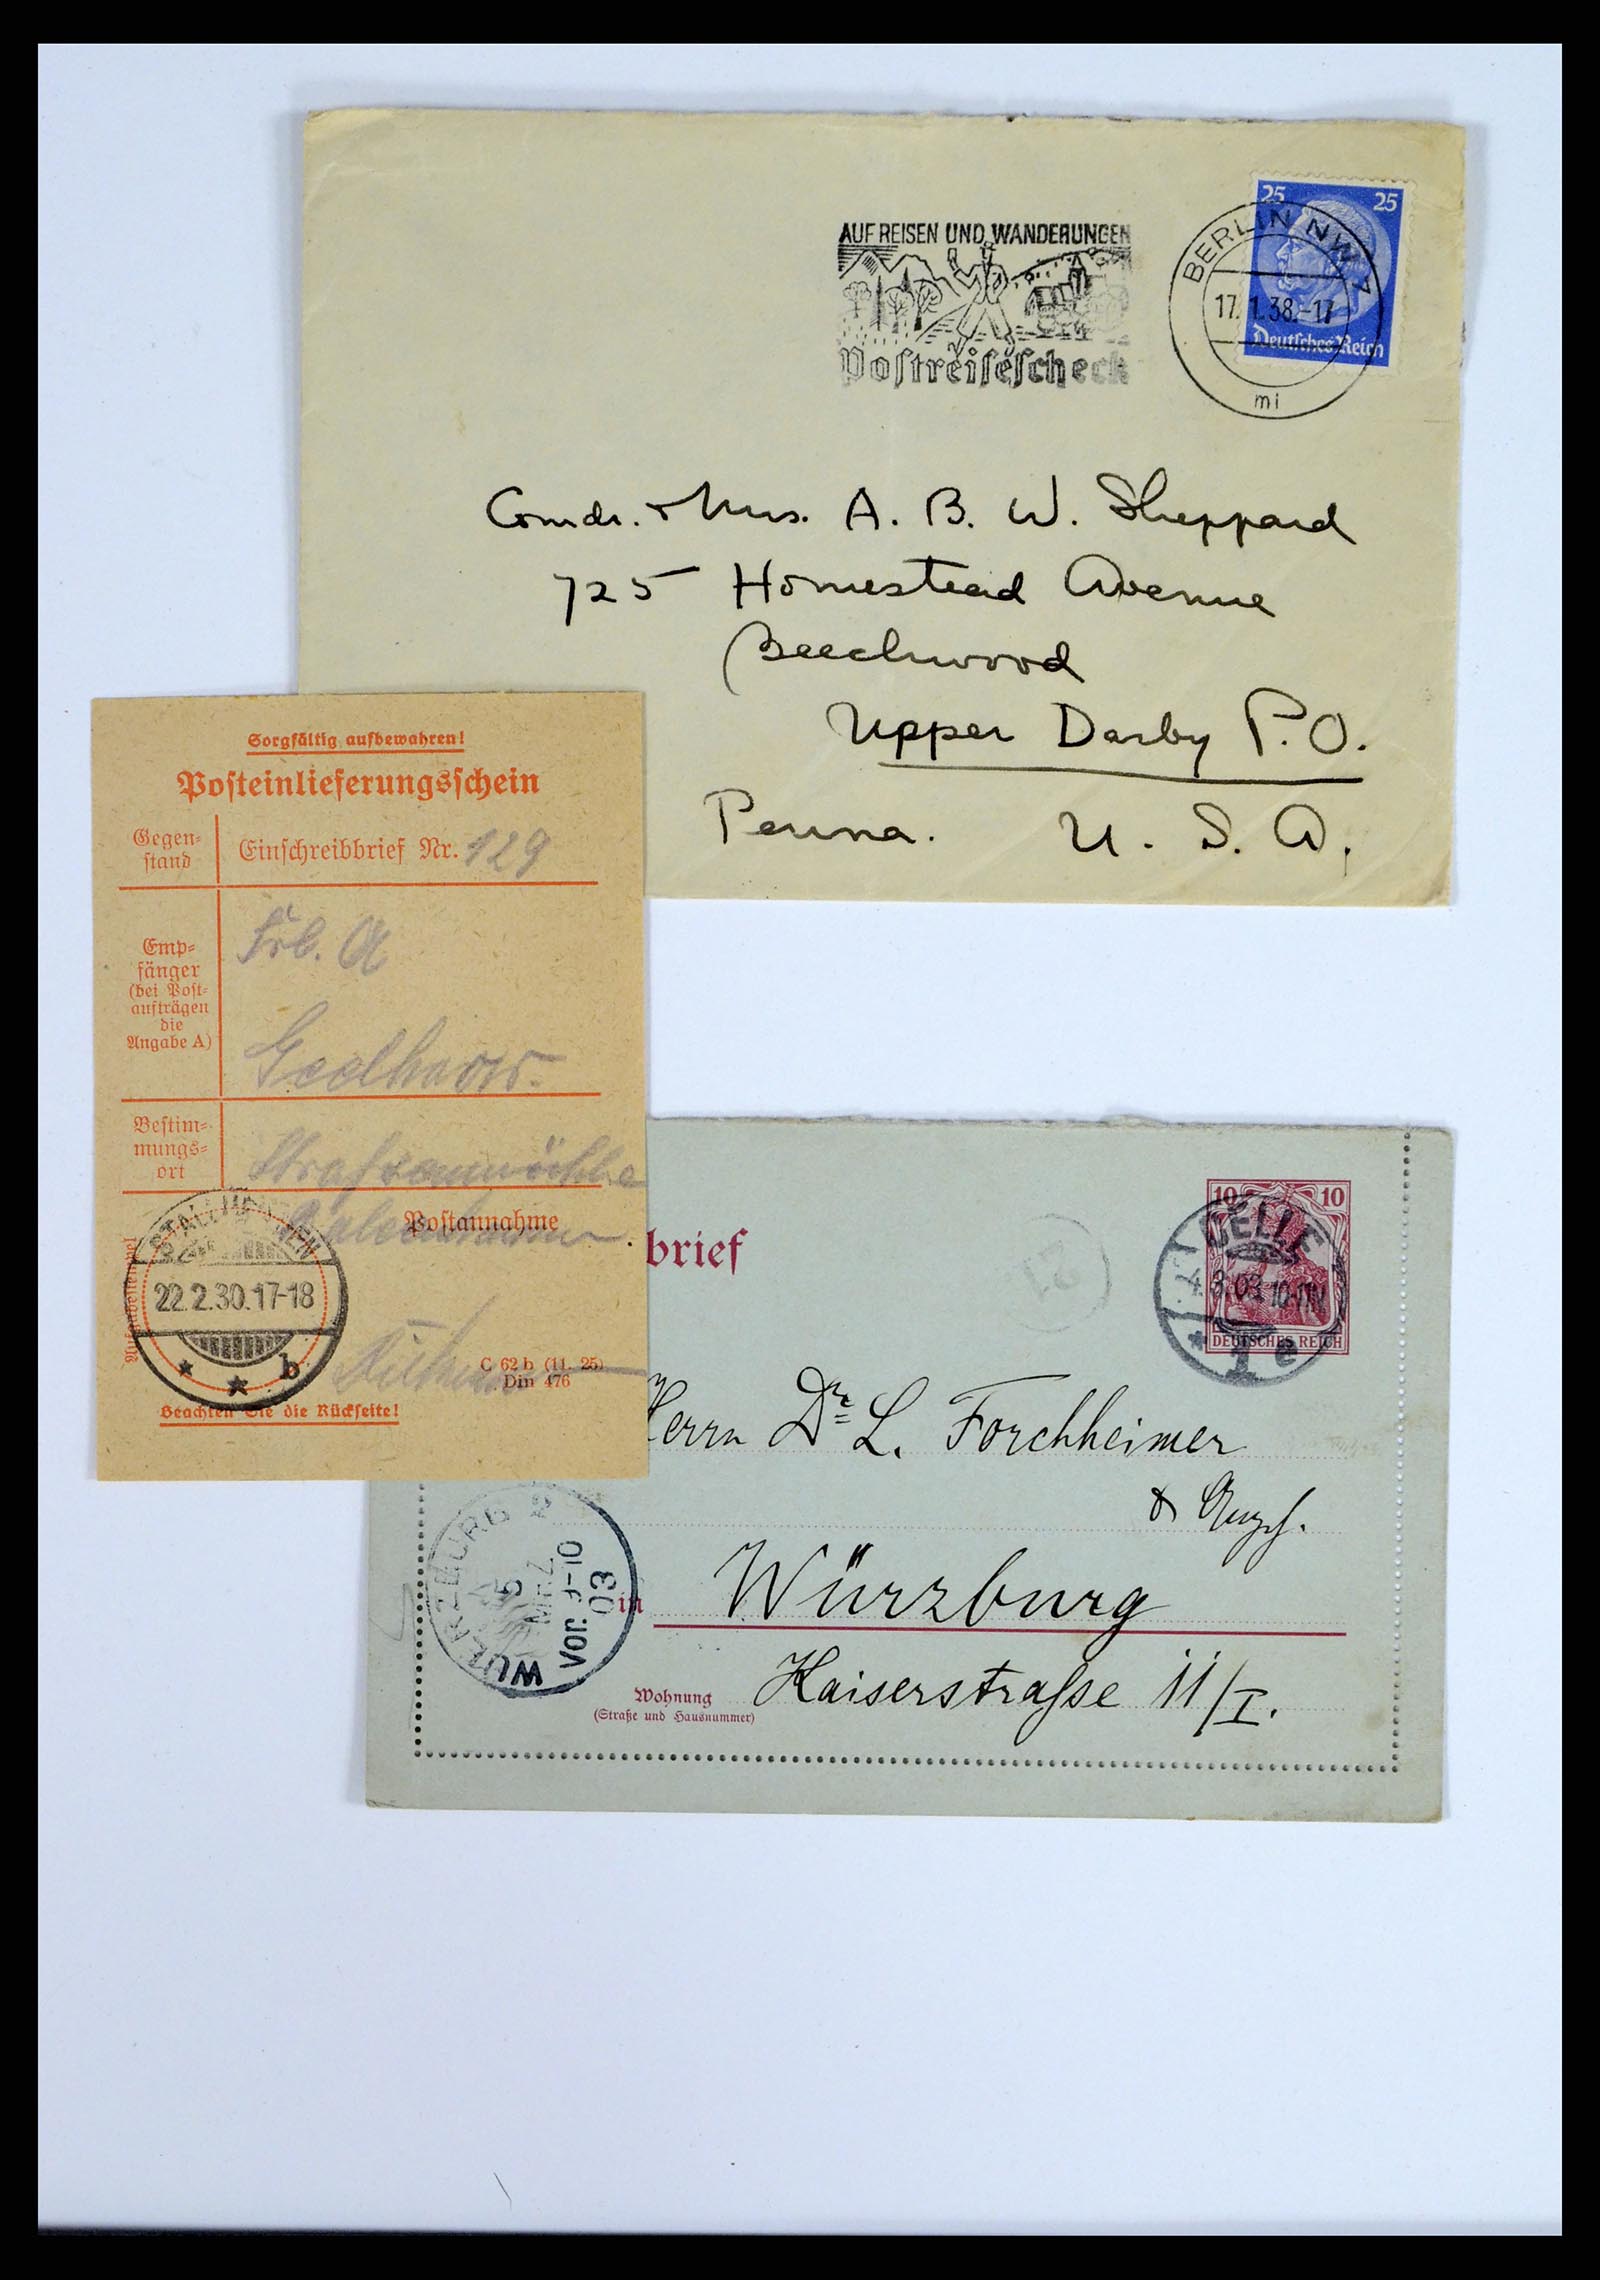 25 25
Deutsches Reich
BERLIN NW 7
17.1.38.-17
mi
AUF REISEN UND WANDERUNGEN
Postreisescheck
Comdr. & Mrs. A. B. W. Sheppard
725 Homestead Avenue
Beechwood
Upper Darby P.O.
Penna. U. S. A.
Sorgfältig aufbewahren!
Posteinlieferungsschein
Gegen-
stand
Einschreibbrief Nr. 129
Emp-
fänger
(bei Post-
aufträgen
die
Angabe A)
Bestim-
mungs-
ort
Postannahme
22.2.30.17-18
b
C 62 b (11. 25)
Din 476
Beachten Sie die Rückseite!
brief
10 10
DEUTSCHES REICH
CELLE
4.3.03.10-11N
1 e
Herrn Dr. L. Forchheimer
in Würzburg
Wohnung
(Straße und Hausnummer)
Kaiserstraße 11/I.
WUERZBURG 2
5
MRZ
Vor. 9-10
03